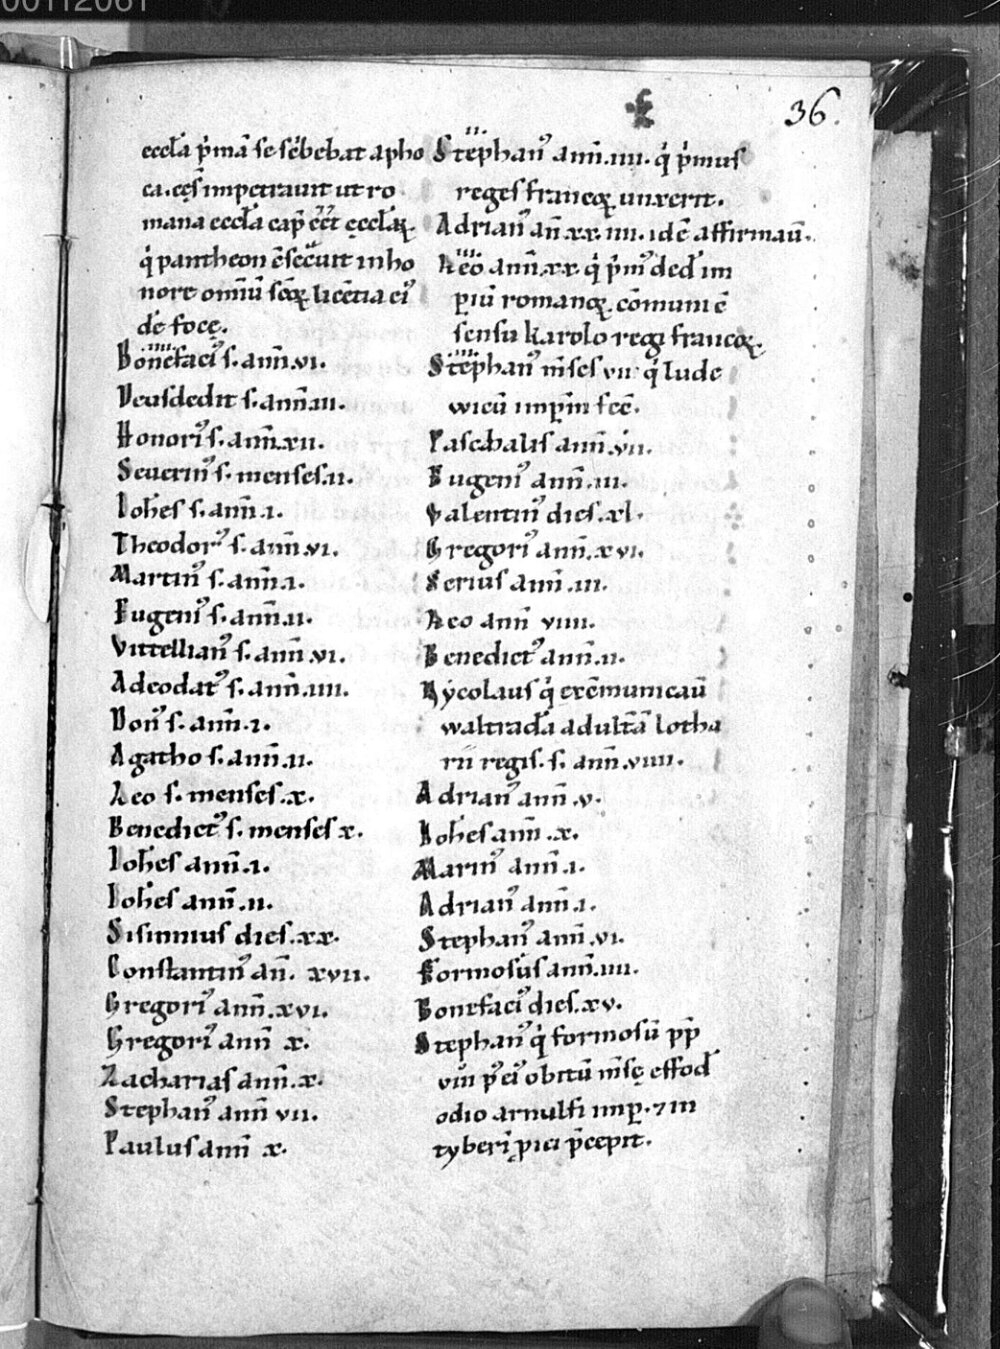 00112061
36.
eccl̄a p̄mā se sc̄bebat a pho
ca. ces̄ impetrauit ut ro
mana eccl̄a cap̄ eēt ęccl̄aꝝ.
q̄ pantheon c̄secūit in ho
nore om̄iū sc̄oꝝ licētia eiꝰ
de foce.
Bonefaciꝰ s. ann̄.vi.
Deusdedit s. ann̄.iii.
Honoriꝰ s. ann̄.xii.
Seuerinꝰ s. menses.ii.
Ioh̄es s. ann̄.i.
Theodorꝰ s. ann̄.vi.
Martinꝰ s. ann̄.i.
Eugeniꝰ s. ann̄.ii.
Vittellianꝰ s. ann̄.vi.
Adeodatꝰ s. ann̄.iiii.
Donꝰ s. ann̄.i.
Agatho s. ann̄.ii.
Leo s. menses.x.
Benedictꝰ s. menses x.
Ioh̄es ann̄.i.
Ioh̄es ann̄.ii.
Sisinnius dies.xx.
Constantinꝰ an̄. xvii.
Gregoriꝰ ann̄.xvi.
Gregoriꝰ ann̄ x.
Zacharias ann̄.x.
Stephanꝰ ann̄ vii.
Paulus ann̄ x.
Stephanꝰ ann̄.iiii. q̄ p̄mus
reges francoꝝ unxerit.
Adrianꝰ an̄.xx.iiii. idē affirmaū.
Leo ann̄.xx. q̄ p̄mꝰ ded̄ im
piū romanoꝝ. cōmuni c̄
sensu karolo regi francoꝝ.
Stephanꝰ m̄ses vii q̄ lude
wicū imp̄m fec̄.
Paschalis ann̄.vii.
Eugeniꝰ ann̄.iii.
Valentinꝰ dies.xl.
Gregoriꝰ ann̄.xvi.
Serius ann̄.iii.
Leo ann̄ viiii.
Benedictꝰ ann̄.ii.
Nycolaus q̄ excēmunicaū
waltradā adultā lotha
rii regis. s. ann̄.viiii.
Adrianꝰ ann̄.v.
Ioh̄es ann̄.x.
Marinꝰ ann̄.i.
Adrianꝰ ann̄.i.
Stephanꝰ ann̄.vi.
Formosus ann̄.iiii.
Bonefaciꝰ dies.xv.
Stephanꝰ q̄ formosū pp̄
viii pꝰ eiꝰ obitū m̄se effod̄
odio arnulfi imꝑ. ⁊ in
tyberī ꝓici p̄cepit.